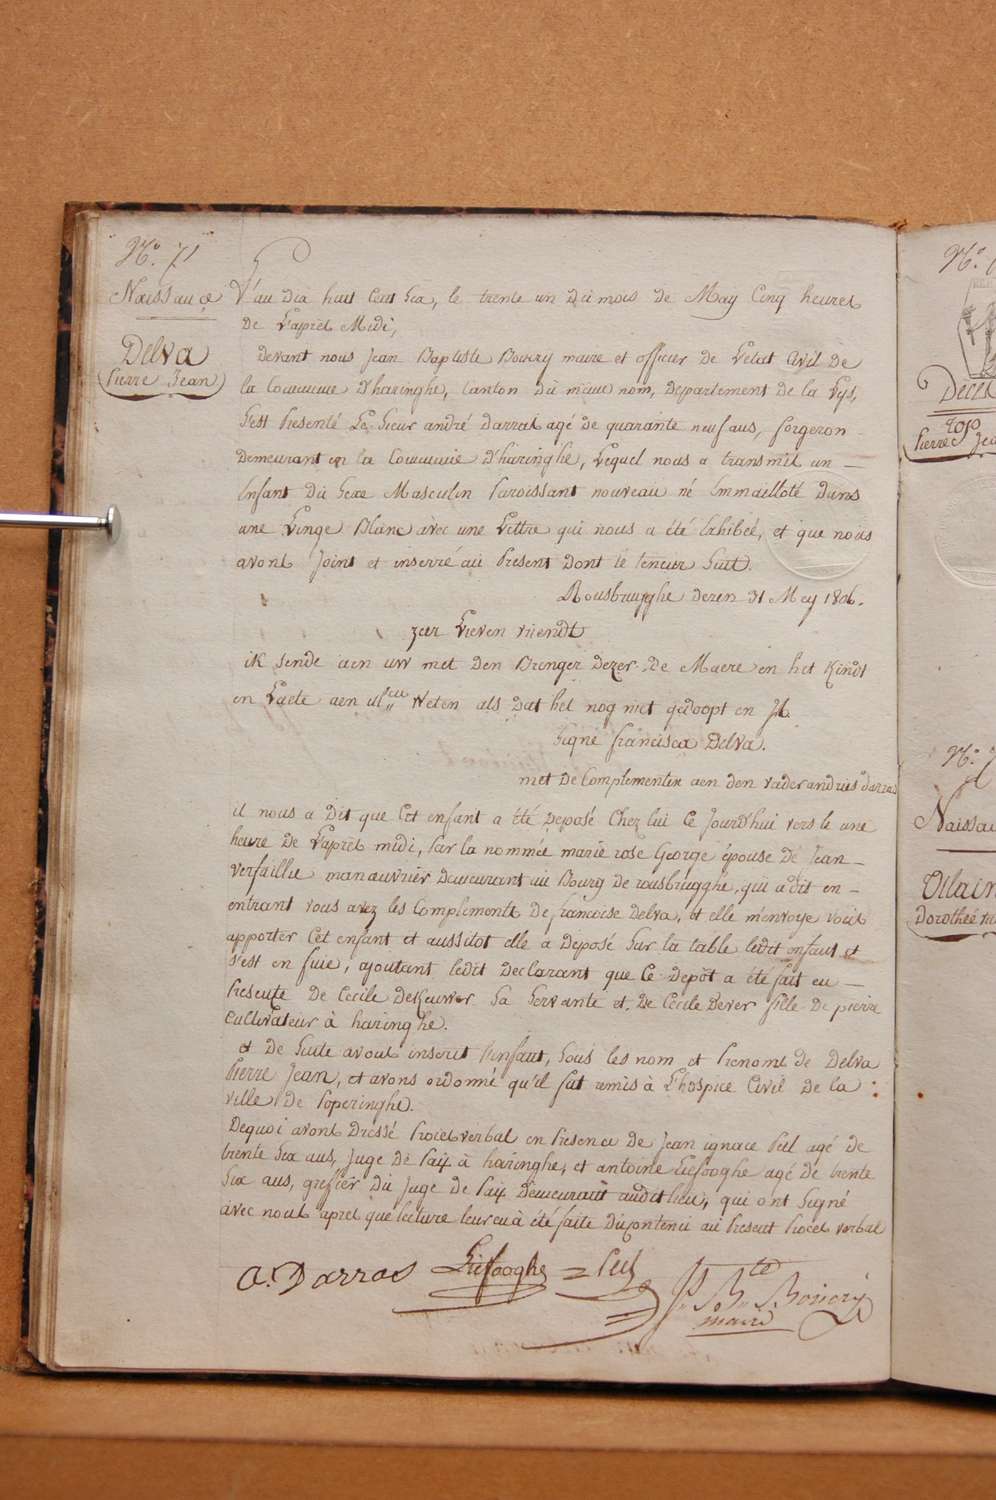 N.° 71
Naissance
Delva
(Pierre Jean)
L'an dix huit cent six, le trente un du mois de May Cinq heures
de L'après Midi,
devant nous Jean Baptiste Bouery maire et officier de L'etat Civil de
la Commune d'haringhe, Canton du même nom, departement de la Lys,
s'est Presenté Le Sieur andré Darras agé de quarante neuf ans, forgeron
demeurant en la Commune d'haringhe, Lequel nous a transmis un —
Enfant du Sexe Masculin Paroissant nouveau né Emmailloté Dans
une Linge Blanc avec une Lettre qui nous a été Exhibée, et que nous
avons Joint et inserré au Present dont le teneur Suit.
Rousbrugghe dezen 31 Mey 1806.
zeer Lieven vriendt
ik sende aen uw met den Brenger dezer de Maere en het Kindt
en Laete aen Weten als dat het nog niet gedoopt en
Signé francisca Delva.
met de Complementen aen den vader andries darras
il nous a dit que Cet enfant a été deposé Chez lui Ce Jourd'hui vers le une
heure de L'après midi, Par la nommée marie rose George épouse de Jean —
Verfaillie manouvrier demeurant au Bourg de rousbrugghe, qui a dit en —
entrant vous avez les Complements de françoise Delva, et elle m'envoye vous
apporter Cet enfant et aussitot elle a deposé Sur la table ledit enfant et
s'est en fuie, ajoutant ledit declarant que Ce depôt a été fait en —
Presente de Cecile deKeuwer Sa Servante et de Cecile dever fille de pierre
Cultivateur à haringhe.
et de Suite avons inscrit l'enfant, Sous les nom et Prenoms de Delva
Pierre Jean, et avons ordonné qu'il fut remis à L'hospice Civil de la
ville de Poperinghe.
Dequoi avons Dressé Procès verbal en Presence de Jean ignace Peel agé de
trente Six ans, Juge de Paix à haringhe, et antoine Liefooghe agé de trente
Six ans, greffier du Juge de Paix demeurant audit lieu, qui ont Signé
avec nous après que lecture leur en à été faite du contenu au Present Procès verbal
A. Darras Liefooghe Peel J. Bte Bouery
maire
N.°
Deces
Pierre
N.°
Naissan
Vilain
Dorothée